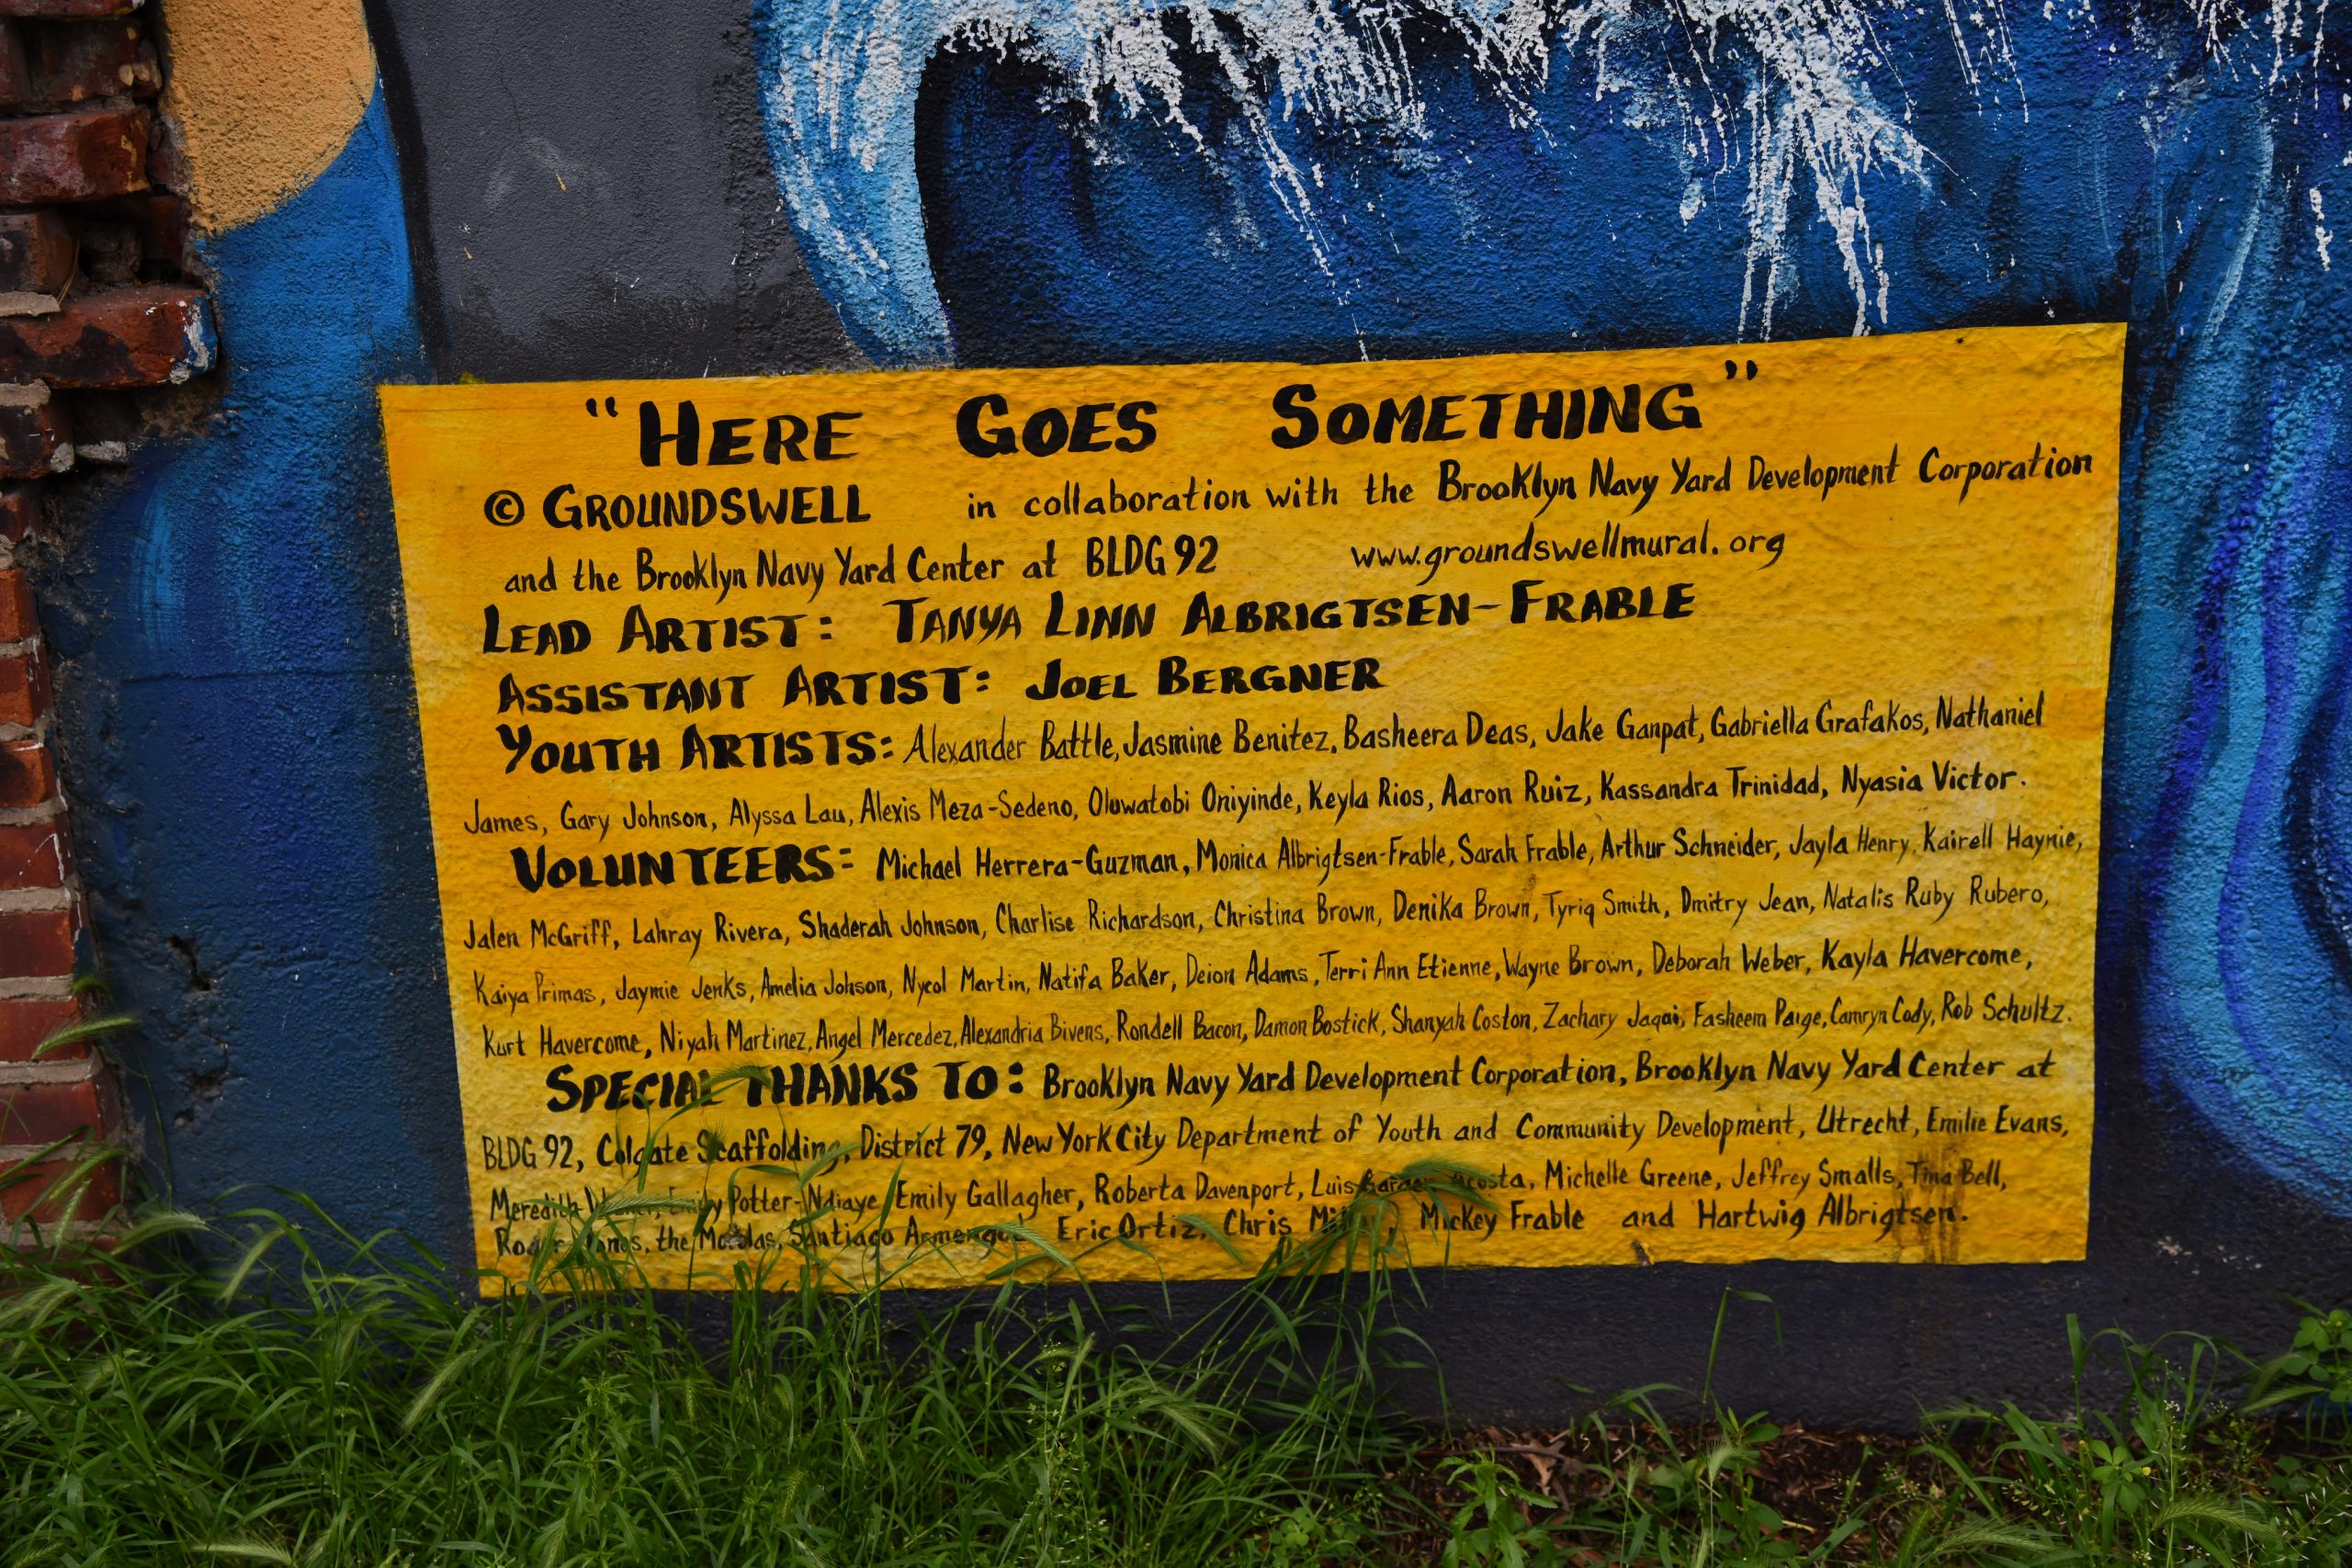 "HERE GOES SOMETHING"
© GROUNDSWELL in collaboration with the Brooklyn Navy Yard Development Corporation
and the Brooklyn Navy Yard Center at BLDG 92 www.groundswellmural.org
LEAD ARTIST: TANYA LINN ALBRIGTSEN-FRABLE
ASSISTANT ARTIST: JOEL BERGNER
YOUTH ARTISTS: Alexander Battle, Jasmine Benitez, Basheera Deas, Jake Ganpat, Gabriella Grafakos, Nathaniel
James, Gary Johnson, Alyssa Lau, Alexis Meza-Sedeno, Oluwatobi Oniyinde, Keyla Rios, Aaron Ruiz, Kassandra Trinidad, Nyasia Victor.
VOLUNTEERS: Michael Herrera-Guzman, Monica Albrigtsen-Frable, Sarah Frable, Arthur Schneider, Jayla Henry, Kairell Haynie,
Jalen McGriff, Lahray Rivera, Shaderah Johnson, Charlise Richardson, Christina Brown, Denika Brown, Tyriq Smith, Dmitry Jean, Natalis Ruby Rubero,
Kaiya Primas, Jaymie Jenks, Amelia Johson, Nycol Martin, Natifa Baker, Deion Adams, Terri Ann Etienne, Wayne Brown, Deborah Weber, Kayla Havercome,
Kurt Havercome, Niyah Martinez, Angel Mercedez, Alexandria Bivens, Rondell Bacon, Damon Bostick, Shanyah Coston, Zachary Jaqai, Fasheem Paige, Camryn Cody, Rob Schultz.
SPECIAL THANKS TO: Brooklyn Navy Yard Development Corporation, Brooklyn Navy Yard Center at
BLDG 92, Colgate Scaffolding, District 79, New York City Department of Youth and Community Development, Utrecht, Emilie Evans,
Meredith Emily Potter-Ndiaye, Emily Gallagher, Roberta Davenport, Luis Michelle Greene, Jeffrey Smalls, Tina Bell,
the Santiago Eric Ortiz, Chris Mickey Frable and Hartwig Albrigtsen.